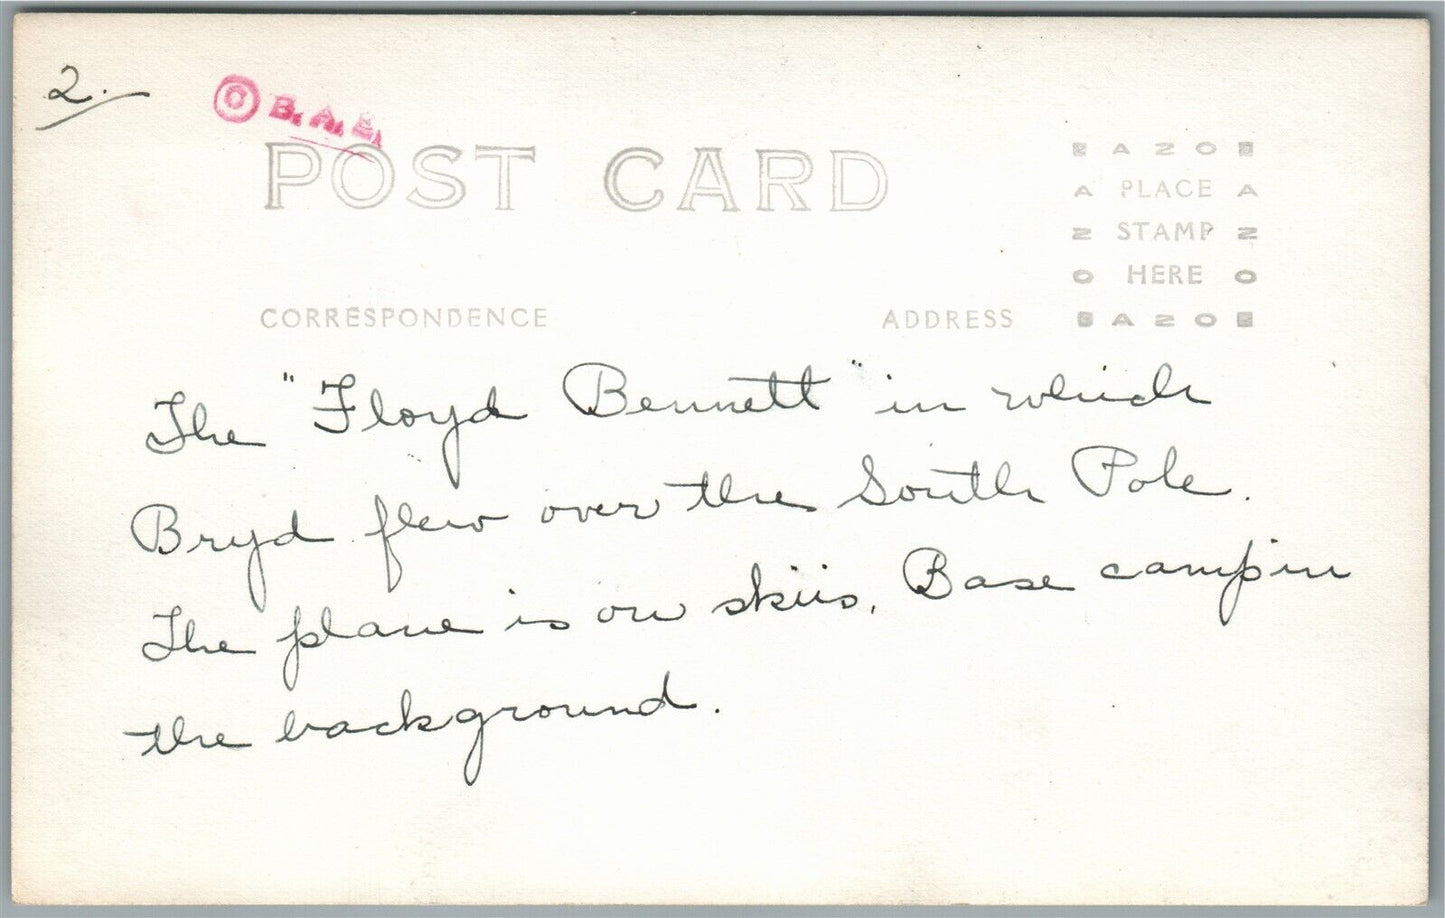 2.
© B.A.E.
POST CARD
CORRESPONDENCE
ADDRESS
AZO
A PLACE A
Z STAMP Z
O HERE O
AZO
The "Floyd Bennett" in which
Bryd flew over the South Pole.
The plane is on skiis. Base camp in
the background.